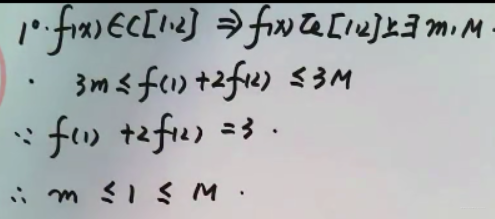 1°. f(x)∈C[1.2] ⇒ f(x)在[1,2]上∃m,M.
3m ≤ f(1)+2f(2) ≤ 3M
∵ f(1) +2f(2) =3 .
∴ m ≤ 1 ≤ M .